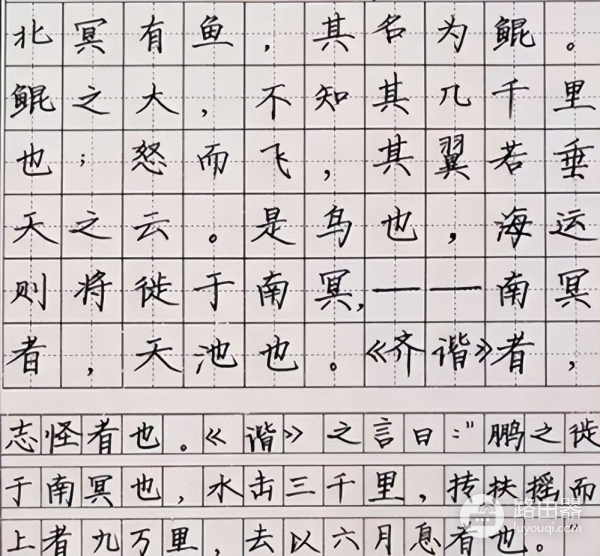 北冥有鱼，其名为鲲。
鲲之大，不知其几千里
也；怒而飞，其翼若垂
天之云。是鸟也，海运
则将徙于南冥，——南冥
者，天池也。《齐谐》者，
志怪者也。《谐》之言曰：“鹏之徙
于南冥也，水击三千里，抟扶摇而
上者九万里，去以六月息者也。”
路由器
luyouqi.com